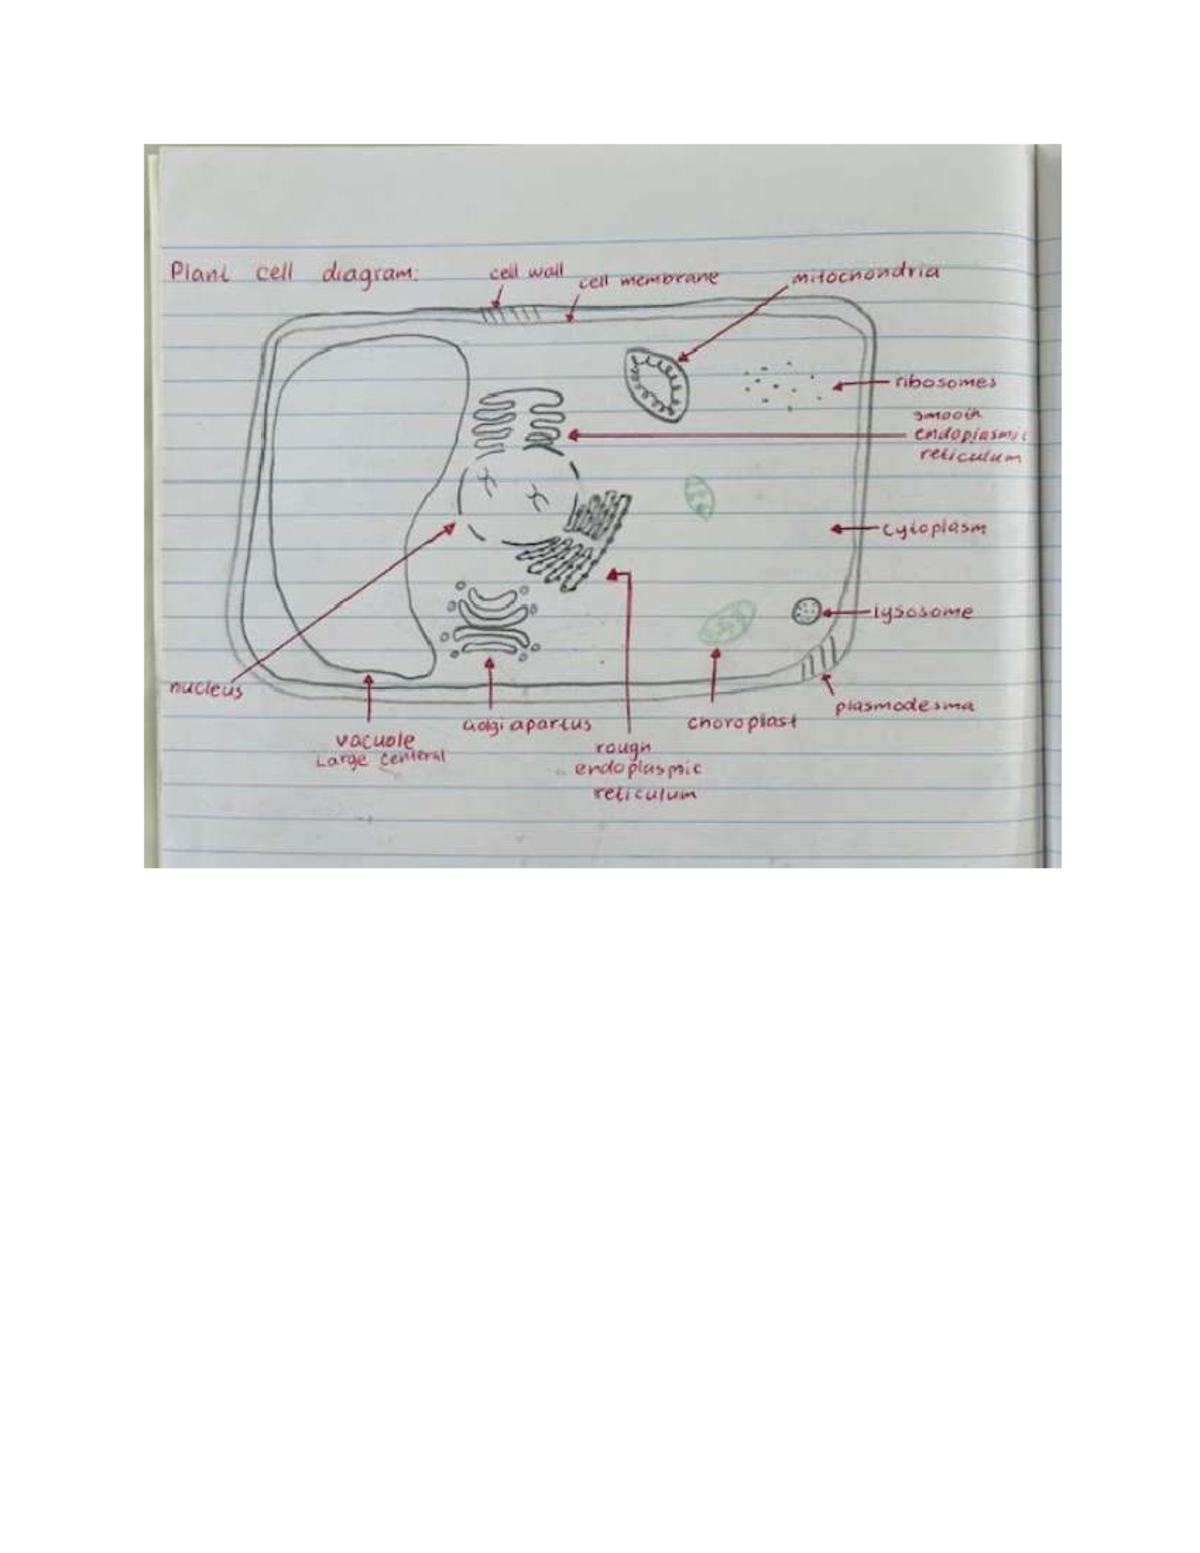 Plant cell diagram:
cell wall
cell membrane
mitochondria
ribosomes
smooth
endoplasmic
reticulum
cytoplasm
lysosome
plasmodesma
nucleus
vacuole
Large centeral
Golgi apartus
rough
endoplasmic
reticulum
choroplast